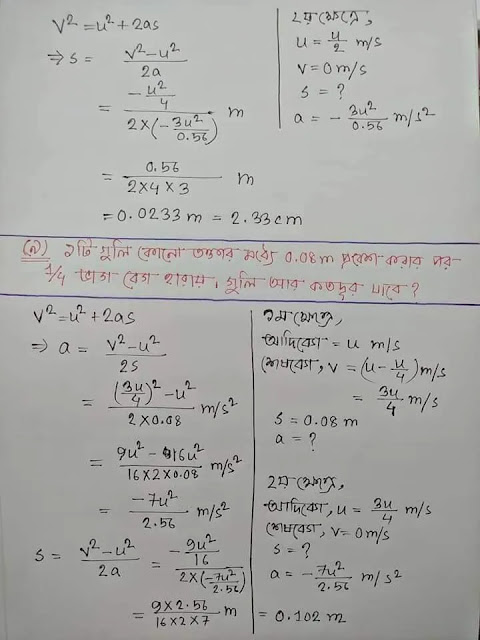 v² = u² + 2as
⇒ s = (v² - u²)/2a
= (-u²/4)/(2×(-3u²/0.56)) m
= 0.56/(2×4×3) m
= 0.0233 m = 2.33 cm
২য় ক্ষেত্রে,
u = u/2 m/s
v = 0 m/s
s = ?
a = -3u²/0.56 m/s²
১টি গুলি কোনো তক্তার মধ্যে 0.08m প্রবেশ করার পর
1/4 ভাগ বেগ হারায়। গুলি আর কতদূর যাবে?
v² = u² + 2as
⇒ a = (v² - u²)/2s
= ((3u/4)² - u²)/(2×0.08) m/s²
= (9u² - 16u²)/(16×2×0.08) m/s²
= -7u²/2.56 m/s²
s = (v² - u²)/2a = (-9u²/16)/(2×(-7u²/2.56))
= (9×2.56)/(16×2×7) m = 0.102 m
১ম ক্ষেত্রে,
আদিবেগ = u m/s
শেষবেগ, v = (u - u/4) m/s
= 3u/4 m/s
s = 0.08 m
a = ?
২য় ক্ষেত্রে,
আদিবেগ, u = 3u/4 m/s
শেষবেগ, v = 0 m/s
s = ?
a = -7u²/2.56 m/s²